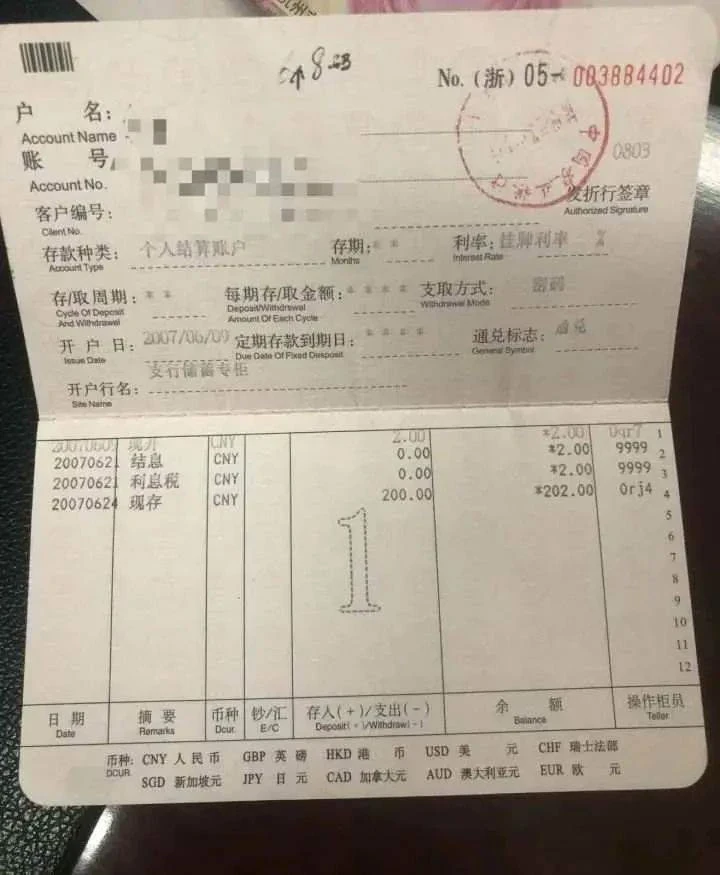 No. (浙) 05- 003884402
户 名:
Account Name
账 号
Account No.
0803
客户编号:
Client No.
发折行签章
Authorized Signature
存款种类: 个人结算账户 存期: * * 利率: 挂牌利率 %
Account Type Months Interest Rate
存/取周期: * * 每期存/取金额: * * * * 支取方式: 密码
Cycle Of Deposit And Withdrawal Deposit/Withdrawal Amount Of Each Cycle Withdrawal Mode
开 户 日: 2007/06/09 定期存款到期日: * * * * 通兑标志: 通兑
Issue Date Due Date Of Fixed Desposit General Symbol
开户行名: 支行储蓄专柜
Site Name
20070609 现开 CNY 2.00 *2.00 0qr7 1
20070621 结息 CNY 0.00 *2.00 9999 2
20070621 利息税 CNY 0.00 *2.00 9999 3
20070624 现存 CNY 200.00 *202.00 0rj4 4
5
6
7
8
9
10
11
12
1
日 期 摘 要 币种 钞/汇 存入(+)/支出(-) 余 额 操作柜员
Date Remarks Dcur. E/C Deposit(+)/Withdraw(-) Balance Teller
币种: CNY 人 民 币 GBP 英 磅 HKD 港 币 USD 美 元 CHF 瑞士法郎
DCUR. SGD 新加坡元 JPY 日 元 CAD 加拿大元 AUD 澳大利亚元 EUR 欧 元